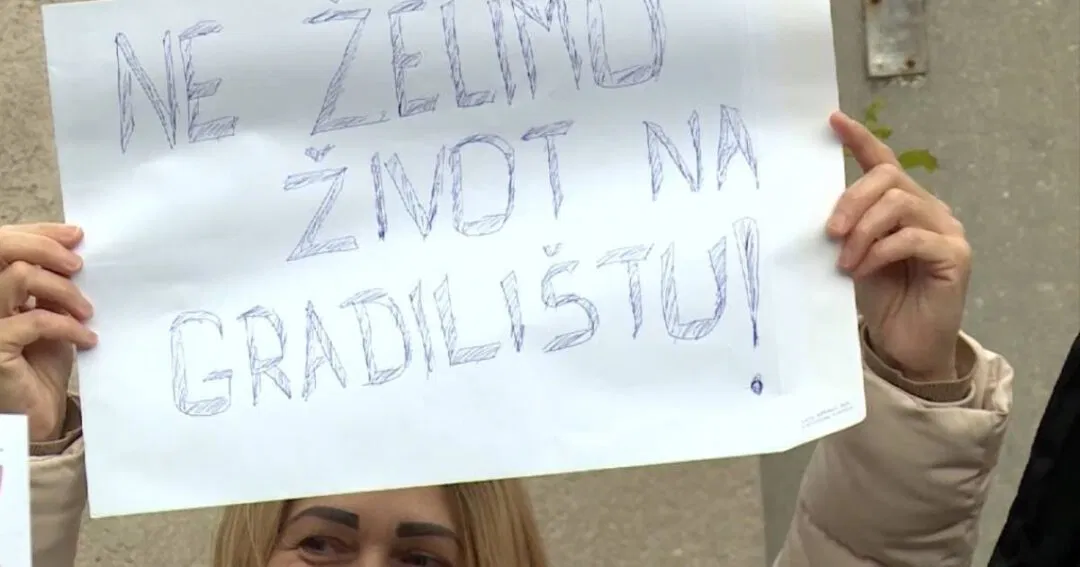 NE ŽELIMO
ŽIVOT NA
GRADILIŠTU!